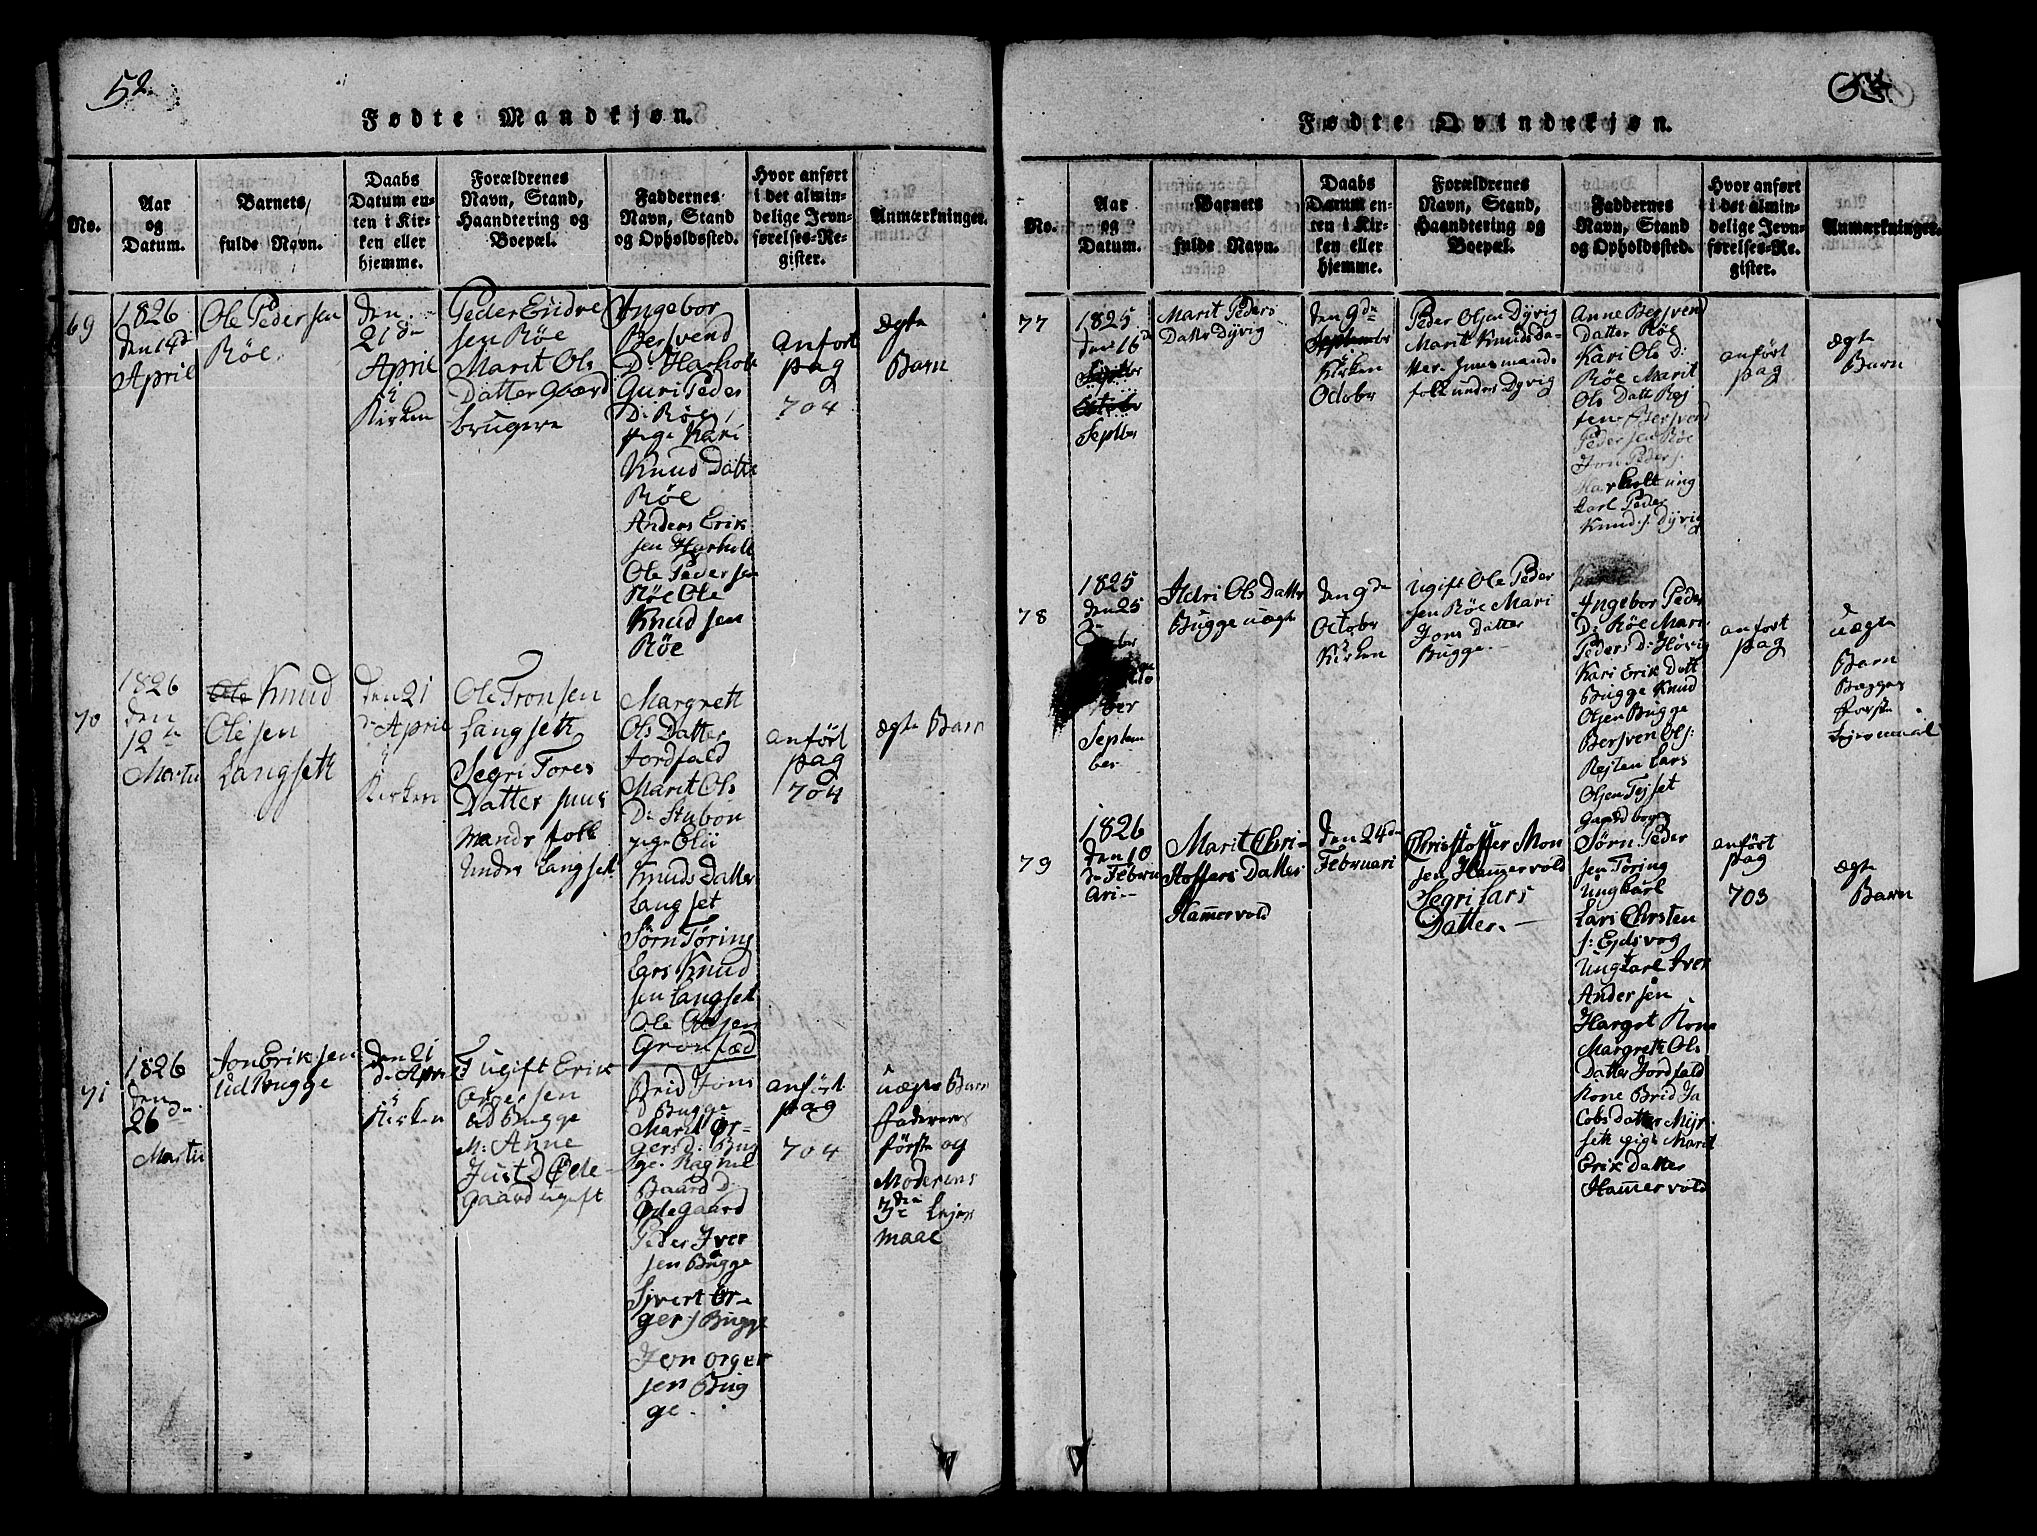 52
Fødte Mandkjøn.
No.
Aar
og
Datum.
Barnets
fulde Navn.
Daabs
Datum en-
ten i Kir-
ken eller
hjemme.
Forældrenes
Navn, Stand,
Haandtering og
Boepæl.
Faddernes
Navn, Stand
og Opholdssted.
Hvor anført
i det almin-
delige Jevn-
førelses-Re-
gister.
Anmærkninger.
69
1826
den 14d
April
Ole Pedersen
Røe.
den
21 dn
April
i
Kirken
Peder Endre
sen Røe
Marit Ols
Datter Gaard
brugere
Ingebor
Bersvend
D: Harholt
Guri Peder
D: Røe
pige Kari
Knud Datte
Røe
Anders Erik
sen Harholt
Ole Peder sen
Røe Ole
Knud sen
Røe
anført
pag
704
ægte
Barn
70
1826
den
12 dn
Martii
Ole Knud
Olesen
Langseth
den 21
dn April
i
Kirken
Ole Tronsen
Langseth
Segri Tores
Datter Huus
mands folk
under Langset
Margreth
Ols Datter
Jordfald
Marit Ols
D: Stubøn
pige Olii
Knuds Datter
Langset
Sørn Tøring
Lars Knud
sen Langset
Ole Olsen
Grønsæd
anført
pag
704
ægte Barn
71
1826
den
26 dn
Martii
Jon Eriksen
Ud Bugge
den 21
dn Apri
i
Kirken
F ugift Erik
Orgersen
Ud Bugge
M: Anne
Just D Øde
gaard ugift
Brid Jons
D Bugge
Marit Ør-
gers d: Bug
ge. Ragnil
Baard D:
Ødegaard
Peder Iver
sen Bugge
Sjvert Ør-
ger s Bugge
Jon Orger
sen Bug
ge.
anført
pag
704
uægte Barn
faderens
første og
Moderens
3die Lejer
maal
Fødte Qvindekjøn.
No.
Aar
og
Datum.
Barnets
fulde Navn.
Daabs
Datum en-
ten i Kir-
ken eller
hjemme.
Forældrenes
Navn, Stand,
Haandtering og
Boepæl.
Faddernes
Navn, Stand
og Opholdssted.
Hvor anført
i det almin-
delige Jevn-
førelses-Re-
gister.
Anmærkninger.
77
1825
den 16 d
Septbr
Octobr
Septber
Marit Peders
Datter Dyvig
den 9 dn
Septembr
i
Kirken
Octobr
Peder Olsen Dyvig
Marit Knudsda-
tter Huusmands
folk under Dyvig
Anne Bersvend
Datter Røe
Kari Ols D:
Røe Marit
Ols Datt Rej
ten Bersvend
Pedersen Røe
Jon Peders.
Harholt ung
karl Peder
Knud s. Dyvig
anført
pag
ægte
Barn
78
1825
den 25
dn
Septem
ber
Ildri Ols Datter
Bugge uægte
den 9 dn
Octobr
i
Kirken
Ugift Ole Peder
sen Røe Mari
Jons Datter
Bugge.
Ingebor Peder
D: Røe Mari
Peders D: Høvig
Kari Erik Datt
Bugge Knud
Olsen Bugge
Bersven Ols:
Rejten Lars
Olsen Tejset
Gaard boger
anført
pag
uægte
Barn
Begges
første
Lejermaal
79
1826
den 10
dn Febru
ari
Marit Chri-
stoffers Datter
Hamervold
den 24 dn
Februari
Christoffer Mon
sen Hamervold
Segri Lars
Datter.
Sørn Peder
sen Tøring
Ungkarl
Lars Chrsten
s: Ejdsvog
Ungkarl Iver
Andersen
Hargot Kone
Margreth Ols
Datter Jordfald
Kone Brid Ja
cobs datter Myr
seth pige Marit
Erik Datter
Hamervold
anført
pag
703
ægte
Barn